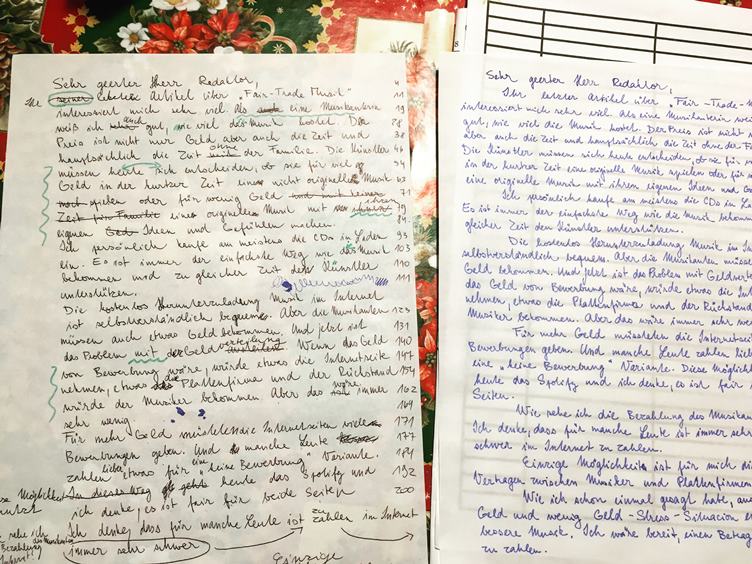 Sehr geerter Herr Redaktor,
Ihr letzter Artikel über "Fair-Trade Musik"
interessiert mich sehr viel. Als eine Musikenterin
weiß ich auch gut, wie viel die Musik kostet. Der
Preis ist nicht nur Geld aber auch die Zeit und
haupfsächlich die Zeit ohne der Familie. Die Künstler
müssen heute sich entscheiden, ob sie für viel
Geld in der kurtzer Zeit eine nicht originelle Musik
spielen oder für wenig Geld
eine originelle Musik mit ihren
eigenen Ideen und Gefühlen machen.
Ich persönlich kaufe am meistens die CDs in Laden
ein. Es ist immer der einfachste Weg wie das Musik
bekommen und zu gleicher Zeit den Künstler
unterstützen.
Die kostenlos Herunterladung Musik im Internet
ist selbstverständlich bequem. Aber die Musikanten
müssen auch etwas Geld bekommen. Und jetzt ist
das Problem mit der Geldverteilung. Wenn das Geld
von Bewerbung wäre, würde etwas die Internetseite
nehmen, etwas die Plattenfirma und der Rückstand
würde der Musiker bekommen. Aber das wäre immer
sehr wenig.
Für mehr Geld müssten die Internetseiten viele
Bewerbungen geben. Und manche Leute
zahlen lieber etwas für eine "keine Bewerbung" Variante.
heute das Spotify und
ich denke, es ist fair für beide Seiten
Ich denke, dass für manche Leute ist zu zahlen im Internet
immer sehr schwer
Einzige
4
11
19
28
38
46
54
63
71
79
85
93
103
110
111
124
131
140
147
154
162
164
171
177
184
192
200
Sehr geerter Herr Redaktor,
Ihr letzter Artikel über "Fair-Trade-
interessiert mich sehr viel. Als eine Musikanterin wei
gut, wie viel die Musik kostet. Der Preis ist nicht
aber auch die Zeit und haupfsächlich die Zeit ohne der Fa
Die Künstler müssen sich heute entscheiden, ob sie für
in der kurzer Zeit eine originelle Musik spielen oder für
eine originelle Musik mit ihrem eigenen Ideen und Ge
Ich persönlich kaufe am meistens die CDs in La
Es ist immer der einfachste Weg wie die Musik bekom
gleicher Zeit den Künstler unterstützen.
Die kostenlos Herunterladung Musik im In
selbstverständlich bequem. Aber die Musikanten müsse
Geld bekommen. Und jetzt ist das Problem mit Geldverte
das Geld von Bewerbung wäre, würde etwas die Inte
nehmen, etwas die Plattenfirma und der Rückstand
Musiker bekommen. Aber das wäre immer sehr we
Für mehr Geld müssten die Internetseiten
Bewerbungen geben. Und manche Leute zahlen lie
eine "keine Bewerbung" Variante. Diese Möglich
heute das Spotify und ich denke, es ist fair f
Seiten.
Wie sehe ich die Bezahlung des Musikan
Ich denke, dass für manche Leute ist immer seh
schwer im Internet zu zahlen.
Einzige Möglichkeit ist für mich di
Vertragen zwischen Musiker und Plattenfirmen
Wie ich schon einmal gesagt habe, au
Geld und wenig Geld-Stress-Situacion e
bessere Musik. Ich wäre bereit, einen Betrag
zu zahlen.